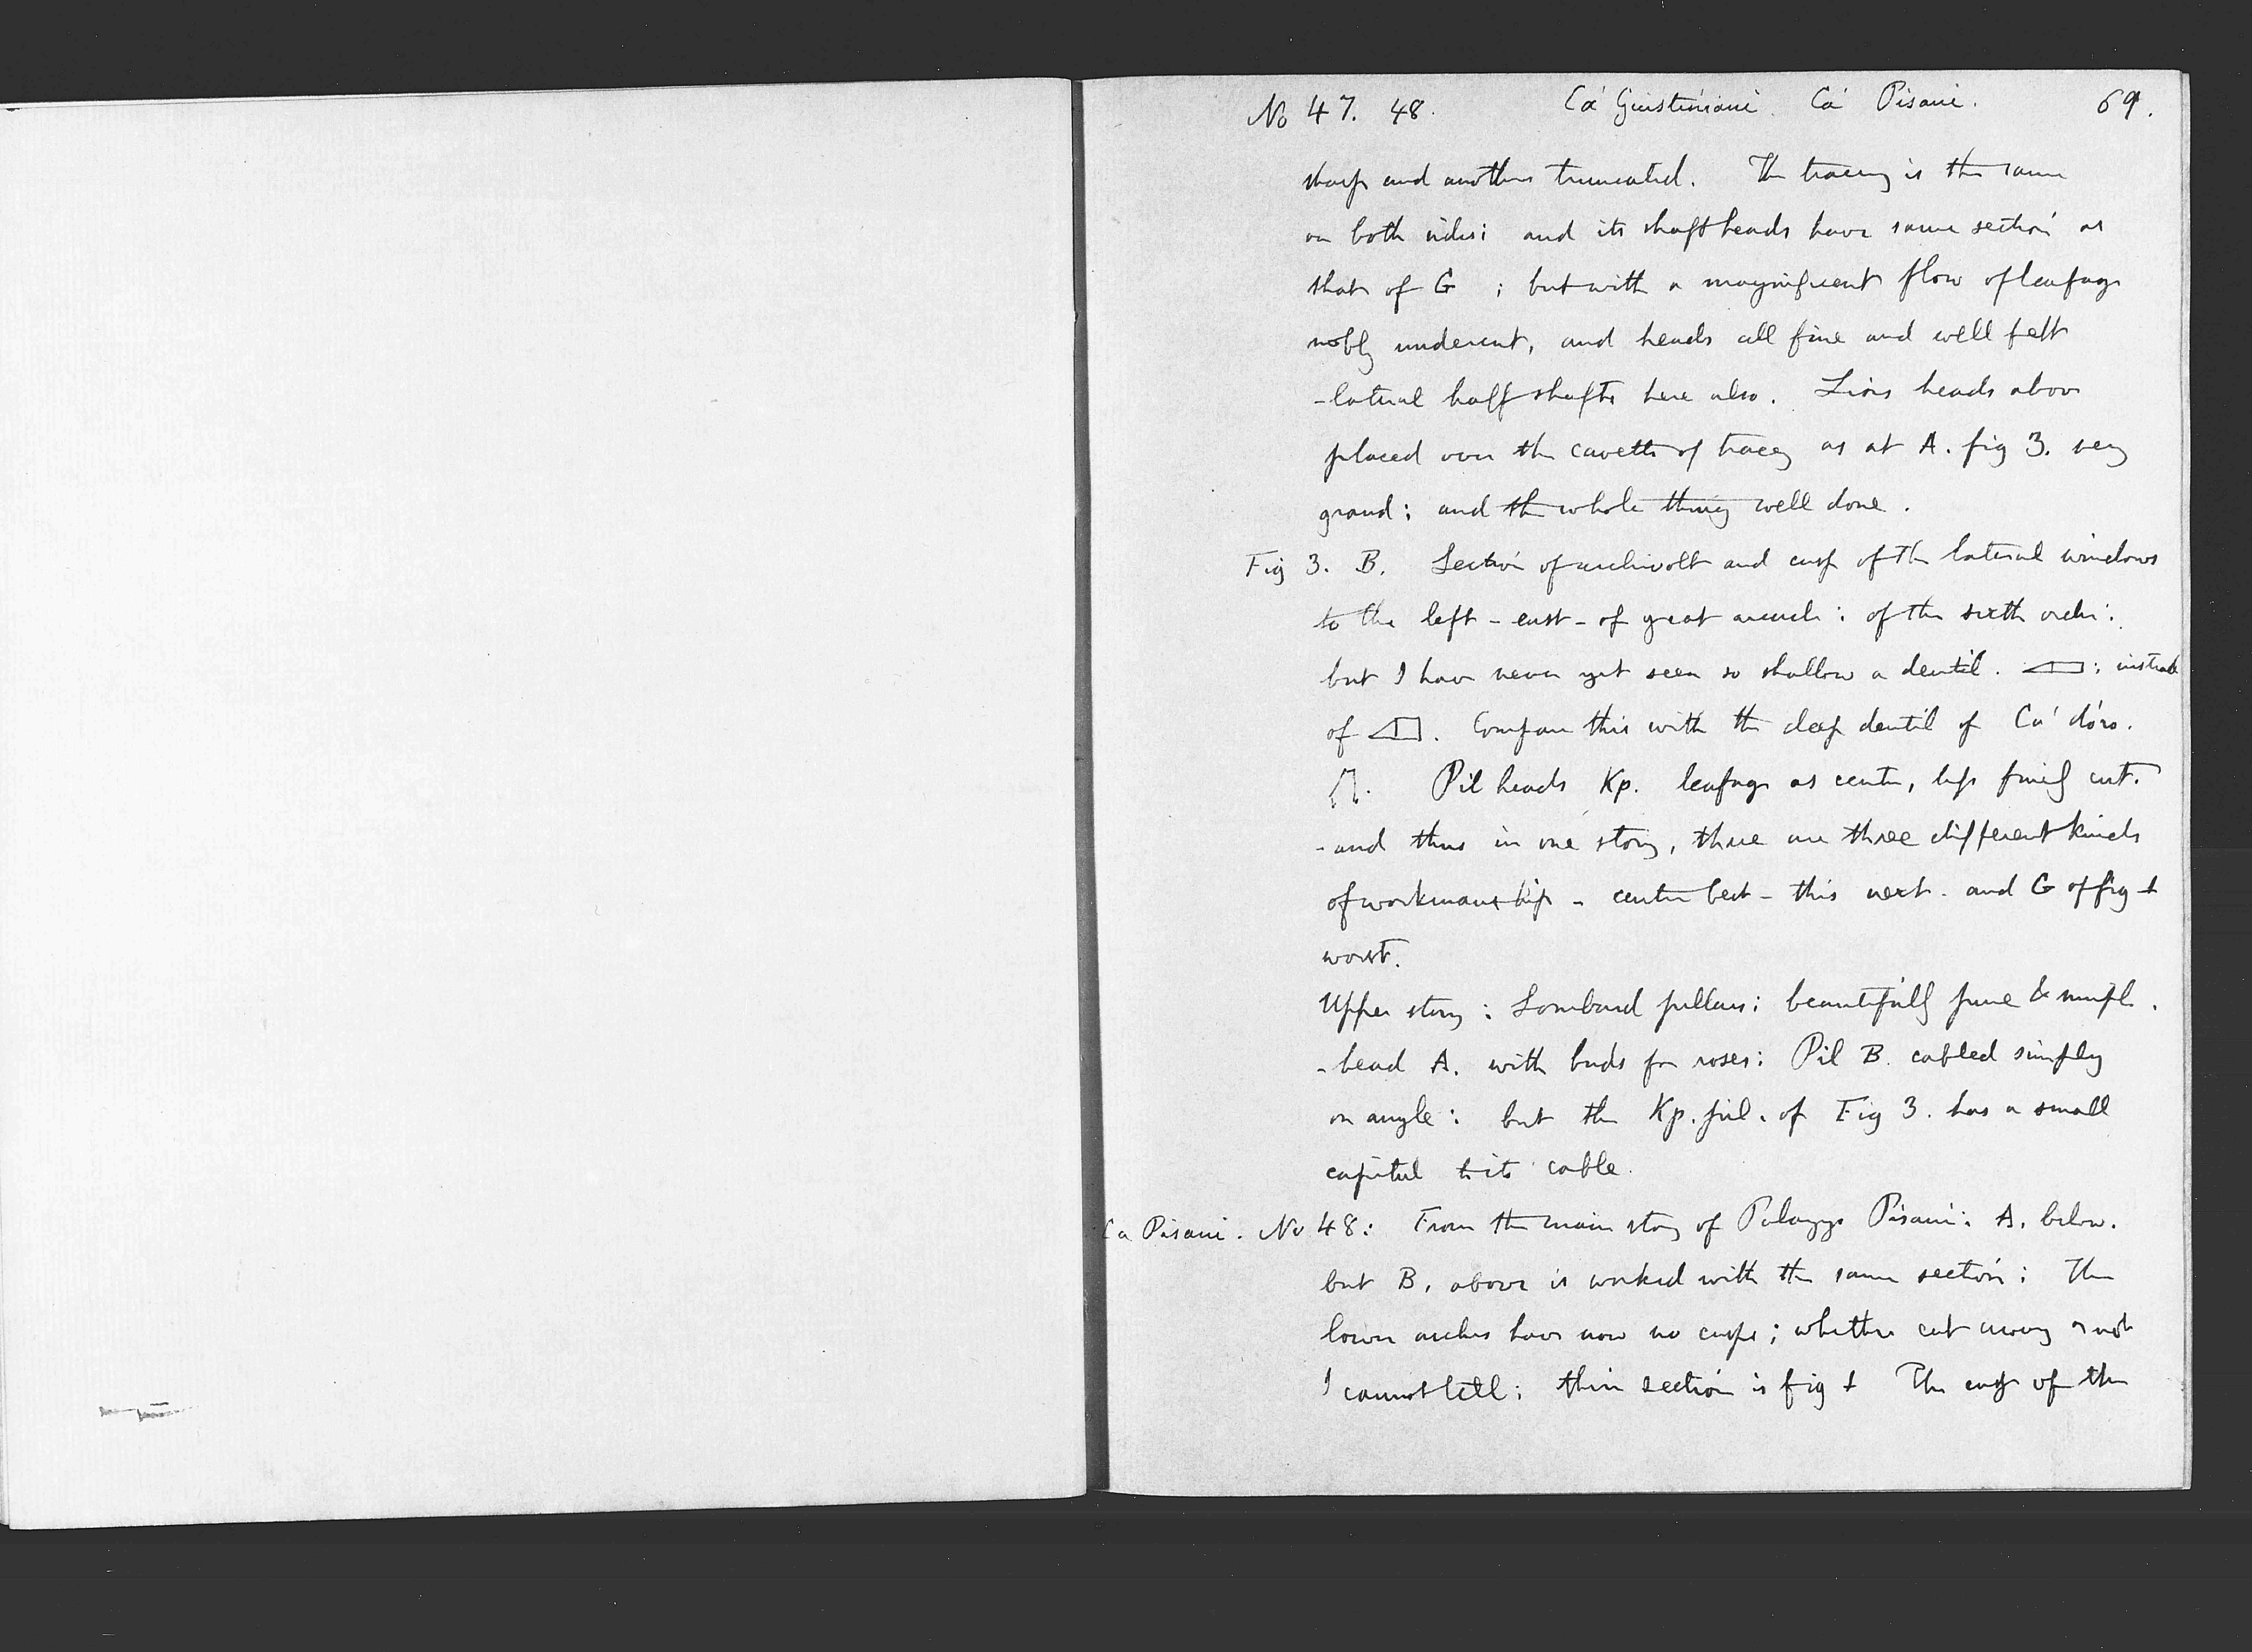 No 47. 48. Ca' Giustiniani. Ca' Pisani. 69.
sharp and another truncated. The tracery is the same
on both sides: and its shaft heads have same section as
that of G ; but with a magnificent flow of leafage
nobly undercut, and heads all fine and well felt
- lateral half shafts here also. Lions heads above
placed over the cavetto of tracery as at A. fig 3. very
grand: and the whole thing well done.
Fig 3. B. Section of archivolt and cusp of the lateral windows
to the left - east - of great arcade: of the sixth order:
but I have never yet seen so shallow a dentil. : instead
of . Compare this with the deep dentil of Ca' d'oro.
Pil heads Kp. leafage as centre, less finely cut.
- and thus in one story, there are three different kinds
of workmanship - centre best - this next - and G of fig 1
worst.
Upper story: Lombard pillars: beautifully pure & simple.
- head A. with buds for roses: Pil B. cabled simply
on angle: but the Kp. pil. of Fig 3. has a small
capital to its cable.
Ca Pisani. No 48: From the main story of Palazzo Pisani: A. below.
but B, above is worked with the same section: The
lower arches have now no cusps; whether cut away or not
I cannot tell: their section is fig 1 The cusp of the